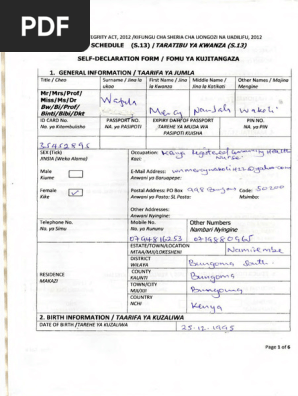 PDF
EGRITY ACT, 2012 /KIFUNGU CHA SHERIA CHA UONGOZI NA UADILIFU, 2012
SCHEDULE (S.13) / TARATIBU YA KWANZA (S.13)
SELF-DECLARATION FORM / FOMU YA KUJITANGAZA
1. GENERAL INFORMATION / TAARIFA YA JUMLA
Title / Cheo Surname / Jina la ukoo First Name / Jina la Kwanza Middle Name / Jina la Katikati Other Names / Majina Mengine
Mr/Mrs/Prof/
Miss/Ms/Dr
Bw/Bi/Prof/
Binti/Bibi/Dkt
Mercy
ID CARD No. PASSPORT No. EXPIRY DATE OF PASSPORT PIN NO.
No. ya Kitambulisho NA. ya PASIPOTI TAREHE YA MUDA WA PASIPOTI KUISHA NA. ya PIN
SEX (Tick) Occupation: Health
JINSIA (Weka Alama) Kazi: Nurse
Male E-Mail Address:
Kiume Anwani ya Barua pepe:
Female Postal Address: PO Box Code: 50200
Kike Anwani ya Posta: SL Posta: Msimbo:
Other Addresses:
Anwani Nyingine:
Telephone No. Mobile No. Other Numbers
No. ya Simu No. ya Rununu Nambari Nyingine
0794816253 0719880965
ESTATE/TOWN/LOCATION
MTAA/MJI/LOKESHENI
DISTRICT
WILAYA Bungoma South
RESIDENCE COUNTY
MAKAZI KAUNTI Bungoma
TOWN/CITY
MJI/JIJI Bungoma
COUNTRY
NCHI Kenya
2. BIRTH INFORMATION / TAARIFA YA KUZALIWA
DATE OF BIRTH /TAREHE YA KUZALIWA 25.12.1995
Page 1 of 6